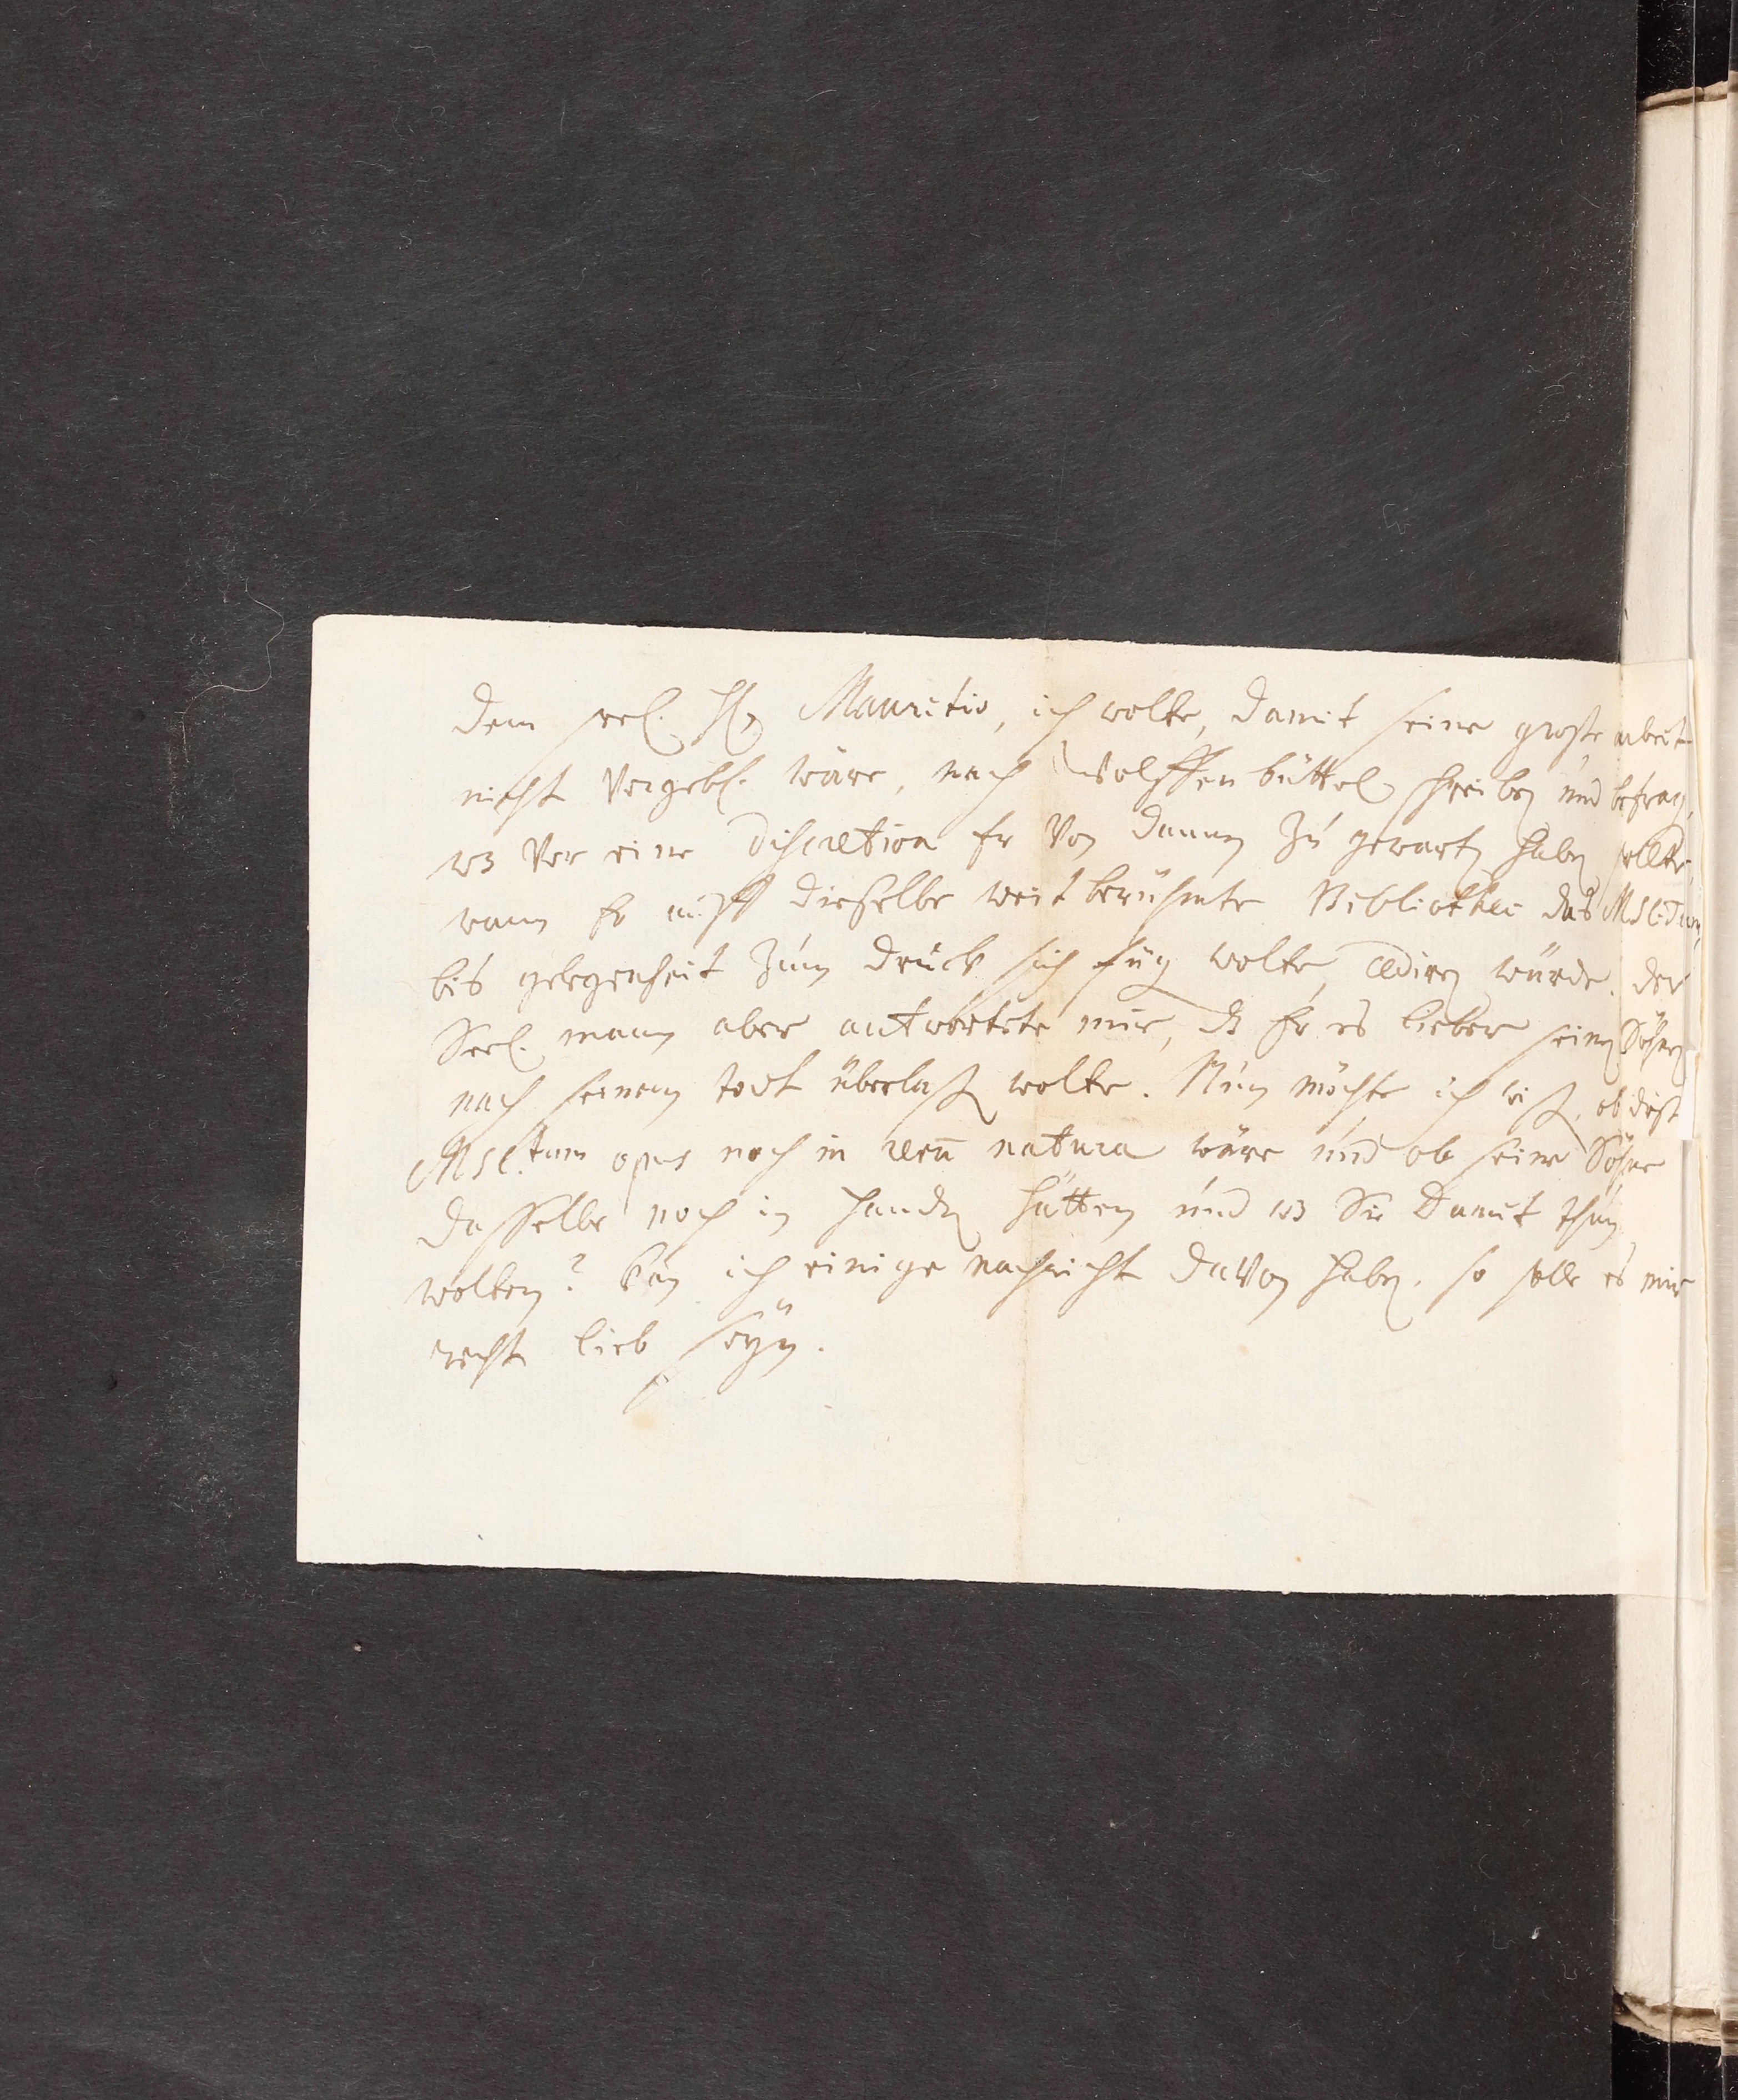 dem seel. H. Mauritio, ich wolte, damit seine große arbeit
nicht vergebl. wäre, nach Wolffenbüttel schreiben und befragen,
wz vor eine discretion Er von dannen zu gewarten haben sollte,
wann Er auff dieselbe weit berühmte Bibliothec das MSCtum,
bis gelegenheit zum druck sich fügen wolte, ediren würde. der
Seel. mann aber antwortete mir, dz Er es lieber seinen Söhnen
nach seinem todt überlaßen wolte. Nun möchte ich wißen, ob diß
MSCtum opus noch in rerū natura wäre und ob seine Söhne
dasselbe noch in handen hätten und wz Sie damit thun
wolten? kan ich einige nachricht davon haben, so solle es mir
recht lieb seyn.